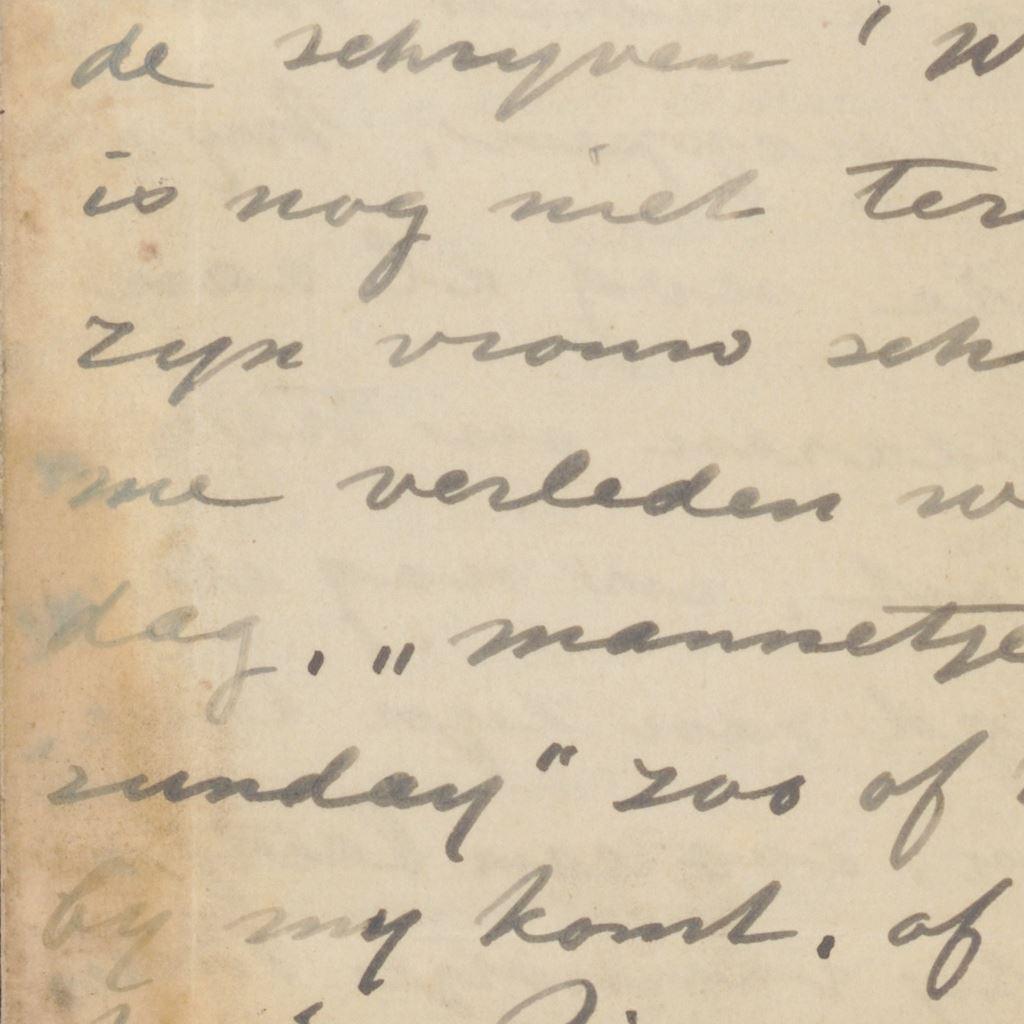 de schryven
is nog niet
zyn vrouw
me verleden
dag. „ mannetje
sunday" zoo of
by my komt. of